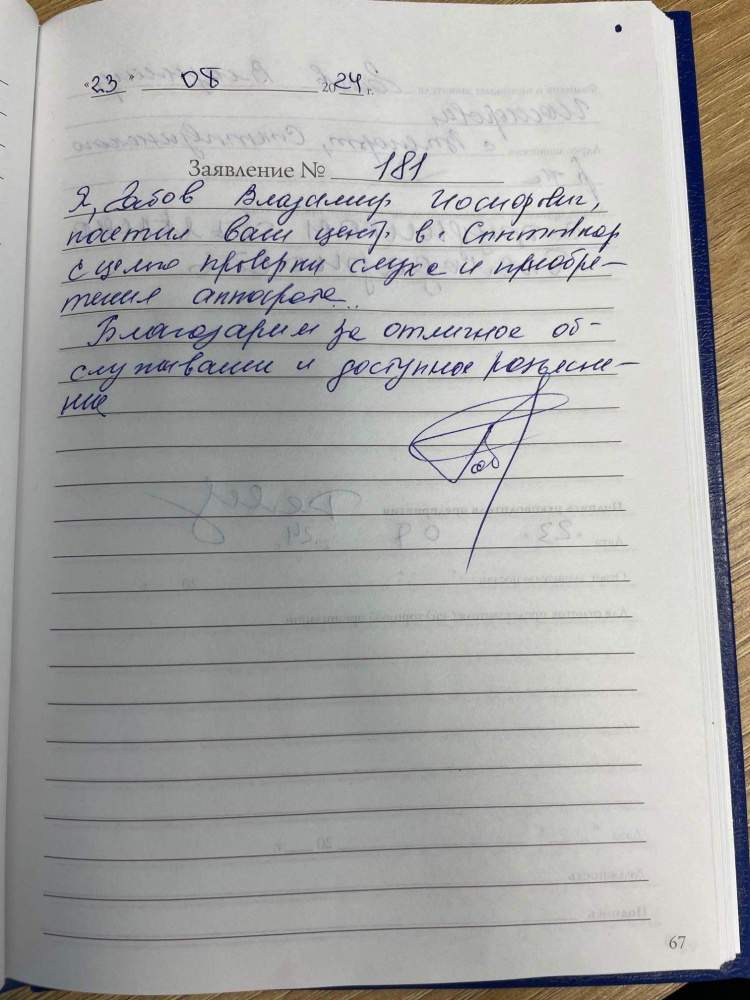 "23" 08 2024 г.
Заявление № 181
Я, Габов Владимир Иосифович,
посетил ваш центр в г. Сыктывкар
с целью проверки слуха и приобре-
тения аппарата.
Благодарим за отличное об-
служивание и доступное разъясне-
ние
67